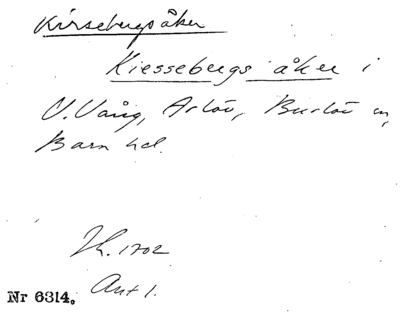 Kirsebergsåker
Kiessebergs åker i
V. Vång, Arlöv, Burlöv sn,
Bara hd.
Lk. 1702
Akt 1.
Nr 6314.